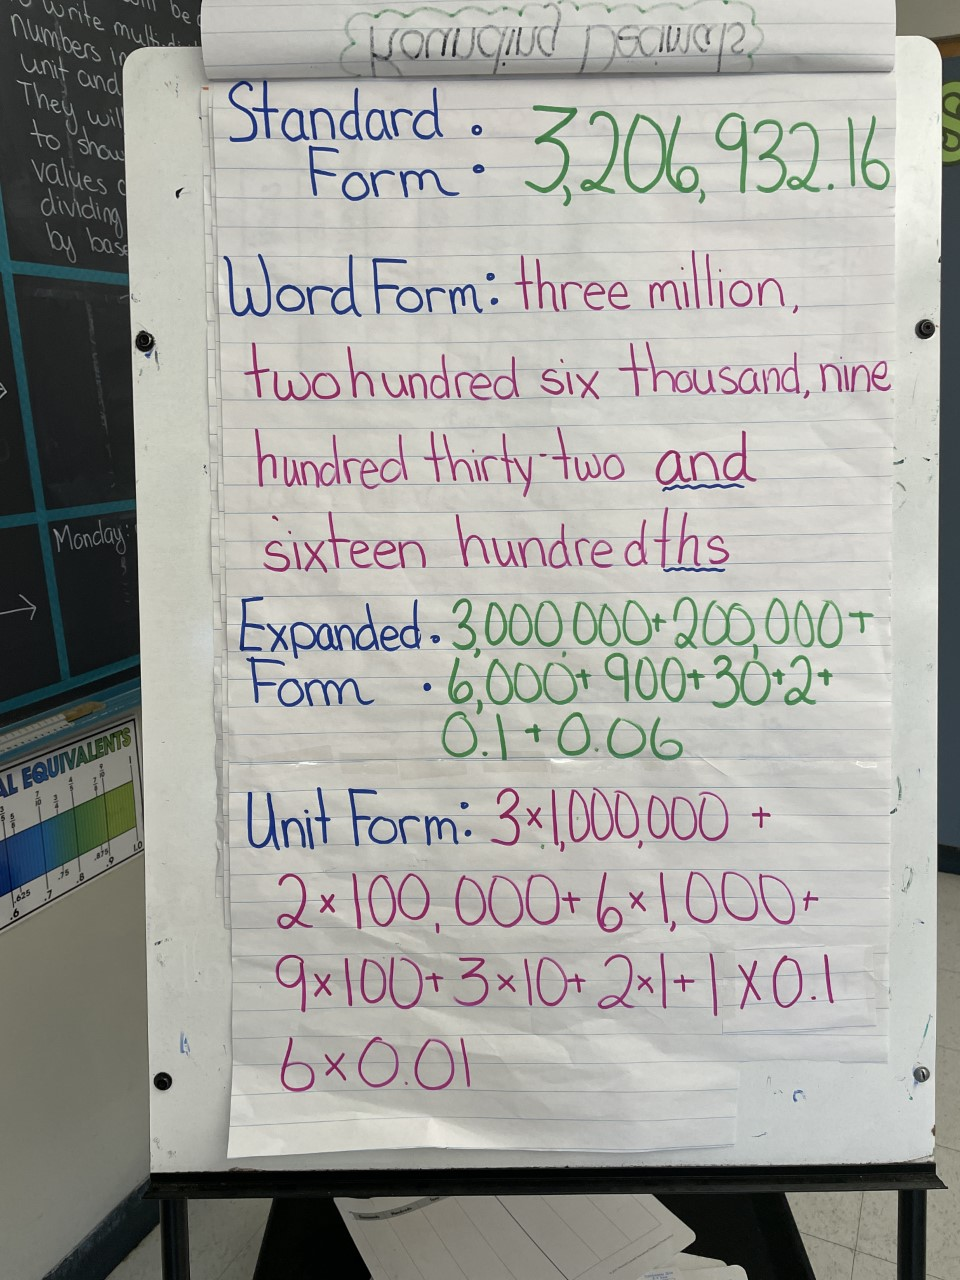 Rounding Decimals
Write mult
numbers in
unit and
They will
to show
values
dividing
by base
Monday:
Standard
Form : 3,206,932.16
Word Form: three million,
two hundred six thousand, nine
hundred thirty-two and
sixteen hundredths
Expanded : 3,000,000+200,000+
Form 6,000+ 900+30+2+
0.1+0.06
Unit Form: 3×1,000,000 +
2×100,000+ 6×1,000+
9×100+ 3×10+ 2×1+ 1 X 0.1
6×0.01
AL EQUIVALENTS
.625 .75 .875
.6 .7 .8 .9 1.0